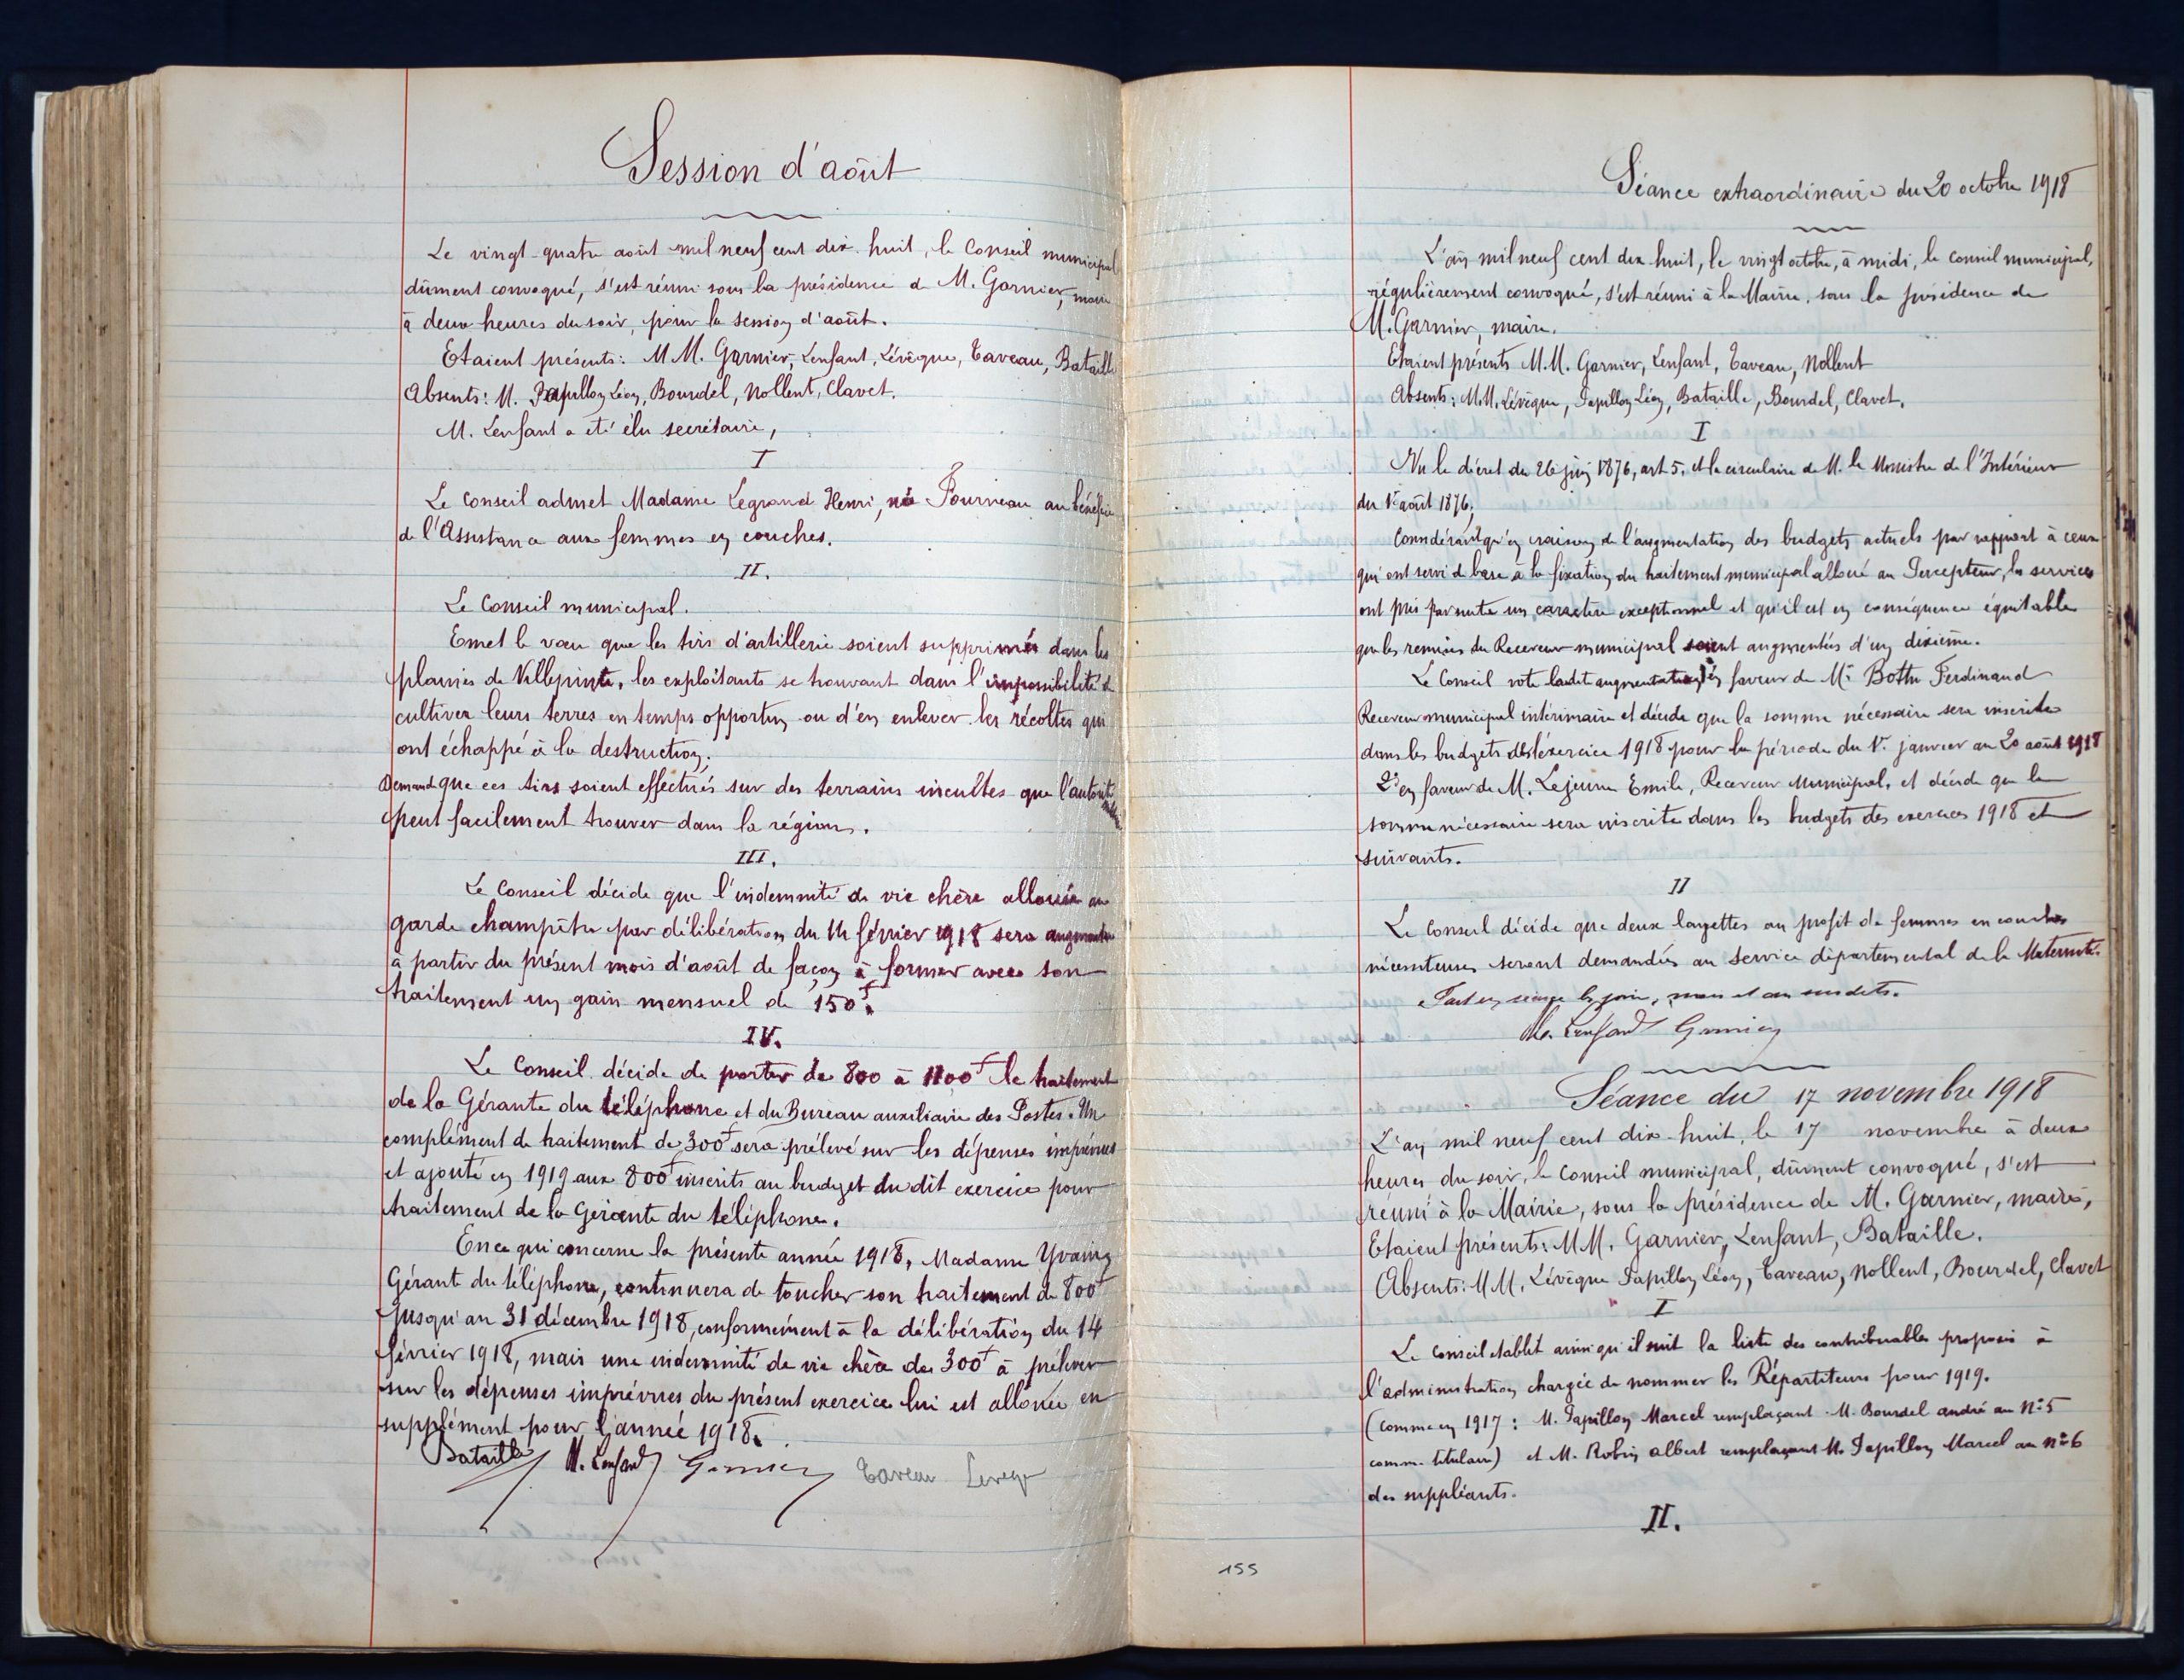 Session d'août
Le vingt-quatre août mil neuf cent dix huit, le Conseil municipal
dûment convoqué, s'est réuni sous la présidence de M. Garnier, maire
à deux heures du soir, pour la session d'août.
Etaient présents: M.M. Garnier, Lenfant, Lévêque, Taveau, Bataille
Absents: M. Papillon Léon, Bourdel, Nollent, Clavet.
M. Lenfant a été élu secrétaire,
I
Le Conseil admet Madame Legrand Henri, née Fourneau au bénéfice
de l'Assistance aux femmes en couches.
II.
Le Conseil municipal.
Emet le vœu que les tirs d'artillerie soient supprimés dans les
plaines de Villepinte, les exploitants se trouvant dans l'impossibilité de
cultiver leurs terres en temps opportun ou d'en enlever les récoltes qui
ont échappé à la destruction;
Demande que ces tirs soient effectués sur des terrains incultes que l'autorité
peut facilement trouver dans la région.
III.
Le Conseil décide que l'indemnité de vie chère allouée au
garde champêtre par délibération du 14 février 1918 sera augmentée
à partir du présent mois d'août de façon à former avec son
traitement un gain mensuel de 150f.
IV.
Le Conseil décide de porter de 800 à 1100f le traitement
de la Gérante du téléphone et du Bureau auxiliaire des Postes. Un
complément de traitement de 300f sera prélevé sur les dépenses imprévues
et ajouté en 1919 aux 800f inscrits au budget du dit exercice pour
traitement de la Gérante du téléphone.
En ce qui concerne la présente année 1918, Madame Yvaing
Gérant du téléphone, continuera de toucher son traitement de 800f
jusqu'au 31 décembre 1918, conformément à la délibération du 14
février 1918, mais une indemnité de vie chère de 300f à prélever
sur les dépenses imprévues du présent exercice lui est allouée en
supplément pour l'année 1918.
Bataille M. Lenfant Garnier Taveau Leveque
Séance extraordinaire du 20 octobre 1918
L'an mil neuf cent dix huit, le vingt octobre, à midi, le conseil municipal,
régulièrement convoqué, s'est réuni à la Mairie, sous la présidence de
M. Garnier, maire.
Etaient présents M.M. Garnier, Lenfant, Taveau, Nollent
Absents: M.M. Lévêque, Papillon Léon, Bataille, Bourdel, Clavet.
I
Vu le décret du 26 juin 1876, art 5, et la circulaire de M. le Ministre de l'Intérieur
du 1er août 1876;
Considérant qu'en raison de l'augmentation des budgets actuels par rapport à ceux
qui ont servi de base à la fixation du traitement municipal alloué au Percepteur, les services
ont pris par suite un caractère exceptionnel et qu'il est en conséquence équitable
que les remises du Receveur municipal soient augmentées d'un dixième.
Le Conseil vote ladite augmentation 1° en faveur de Mr Bottu Ferdinand
Receveur municipal intérimaire et décide que la somme nécessaire sera inscrite
dans les budgets de l'exercice 1918 pour la période du 1er janvier au 20 août 1918
2° en faveur de M. Lejeune Emile, Receveur Municipal, et décide que la
somme nécessaire sera inscrite dans les budgets des exercices 1918 et
suivants.
II
Le Conseil décide que deux layettes au profit de femmes en couches
nécessiteuses seront demandées au service départemental de la Maternité.
Fait en séance les jour, mois et an susdits.
M. Lenfant Garnier
Séance du 17 novembre 1918
L'an mil neuf cent dix-huit, le 17 novembre à deux
heures du soir, le Conseil municipal, dûment convoqué, s'est
réuni à la Mairie, sous la présidence de M. Garnier, maire,
Etaient présents: MM. Garnier, Lenfant, Bataille.
Absents: MM. Lévêque Papillon Léon, Taveau, Nollent, Bourdel, Clavet
I
Le Conseil établit ainsi qu'il suit la liste des contribuables proposés à
l'administration chargée de nommer les Répartiteurs pour 1919.
(comme en 1917: M. Papillon Marcel remplaçant M. Bourdel André au N° 5
comme titulaire) et M. Robin Albert remplaçant M. Papillon Marcel au n° 6
des suppléants.
II.
155